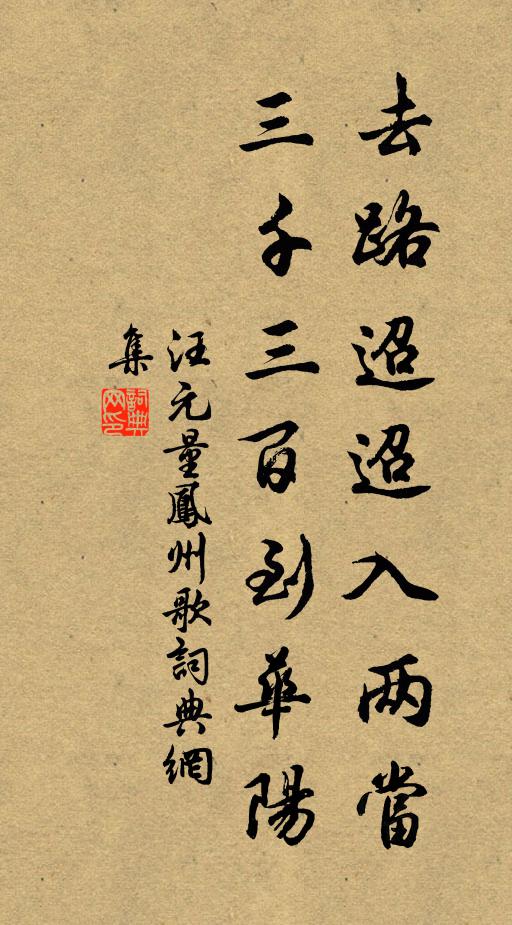 去路迢迢入两當
三千三百到華陽
汪元量鳳州歌詞典網
集
詞典网印